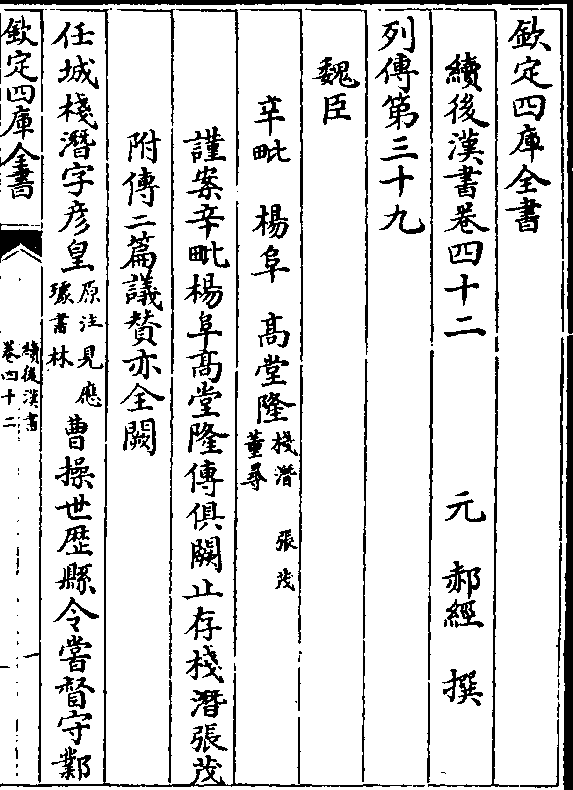 欽定四庫全書
續後漢書卷四十二　元　郝經　撰
列傳第三十九
魏臣
辛毗　楊阜　髙堂隆　棧潛　張茂
董尋
謹案辛毗楊阜髙堂隆傳俱闕止存棧潛張茂
附傳二篇議贊亦全闕
任城棧潛字彦皇原注見應
璩書林
曹操世歴縣令嘗督守鄴
欽定四庫全書
續後漢書
卷四十二